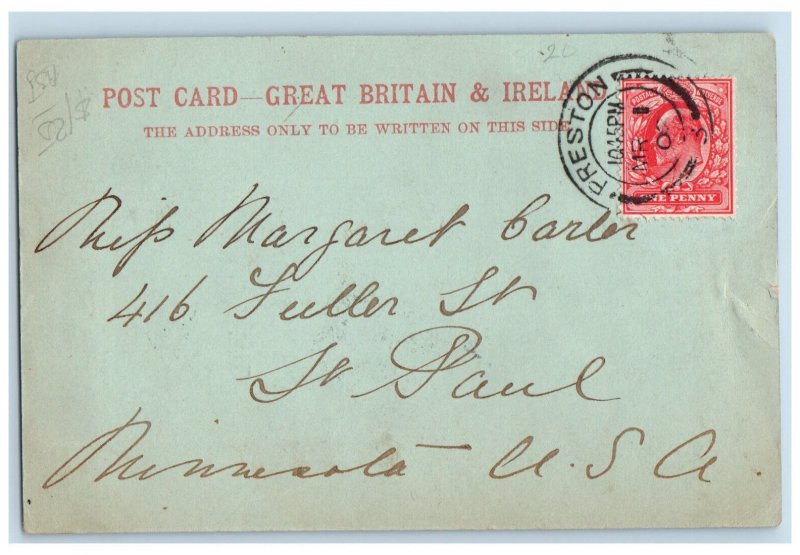 POST CARD—GREAT BRITAIN & IRELAND
THE ADDRESS ONLY TO BE WRITTEN ON THIS SIDE
PRESTON
10.45PM
MR 1
ONE PENNY
20
Miss Margaret Carter
416 Fuller St
St Paul
Minnesota – U.S.A.